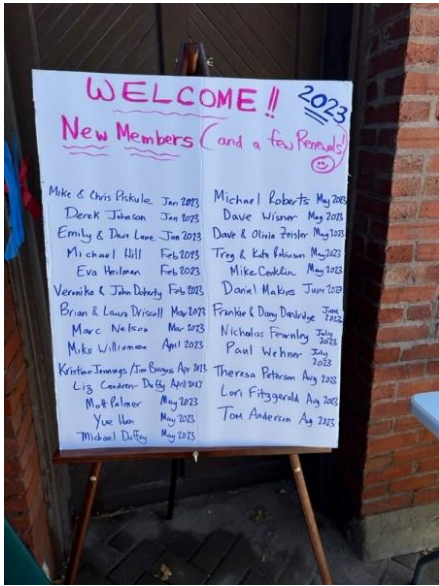 WELCOME!!
2023
New Members (and a few Renewals!)
Mike & Chris Piskule Jan 2023
Derek Johnson Jan 2023
Emily & Dave Lane Jan 2023
Michael Hill Feb 2023
Eva Heilman Feb 2023
Veronika & John Doherty Feb 2023
Brian & Laura Driscoll Mar 2023
Marc Nelson Mar 2023
Mike Williamson April 2023
Kristine Jennings / Jim Apr 2023
Liz Condren-Duffy April 2023
Matt Palmer May 2023
Yue Han May 2023
Michael Duffey May 2023
Michael Roberts May 2023
Dave Wisner May 2023
Dave & Olivia Zeisler May 2023
Trey & Kate Robinson May 2023
Mike Conklin May 2023
Daniel Makies June 2023
Frankie & Dany Dandridge June 2023
Nicholas Fearnley July 2023
Paul Wehner July 2023
Theresa Peterson Aug 2023
Lori Fitzgerald Aug 2023
Tom Anderson Aug 2023